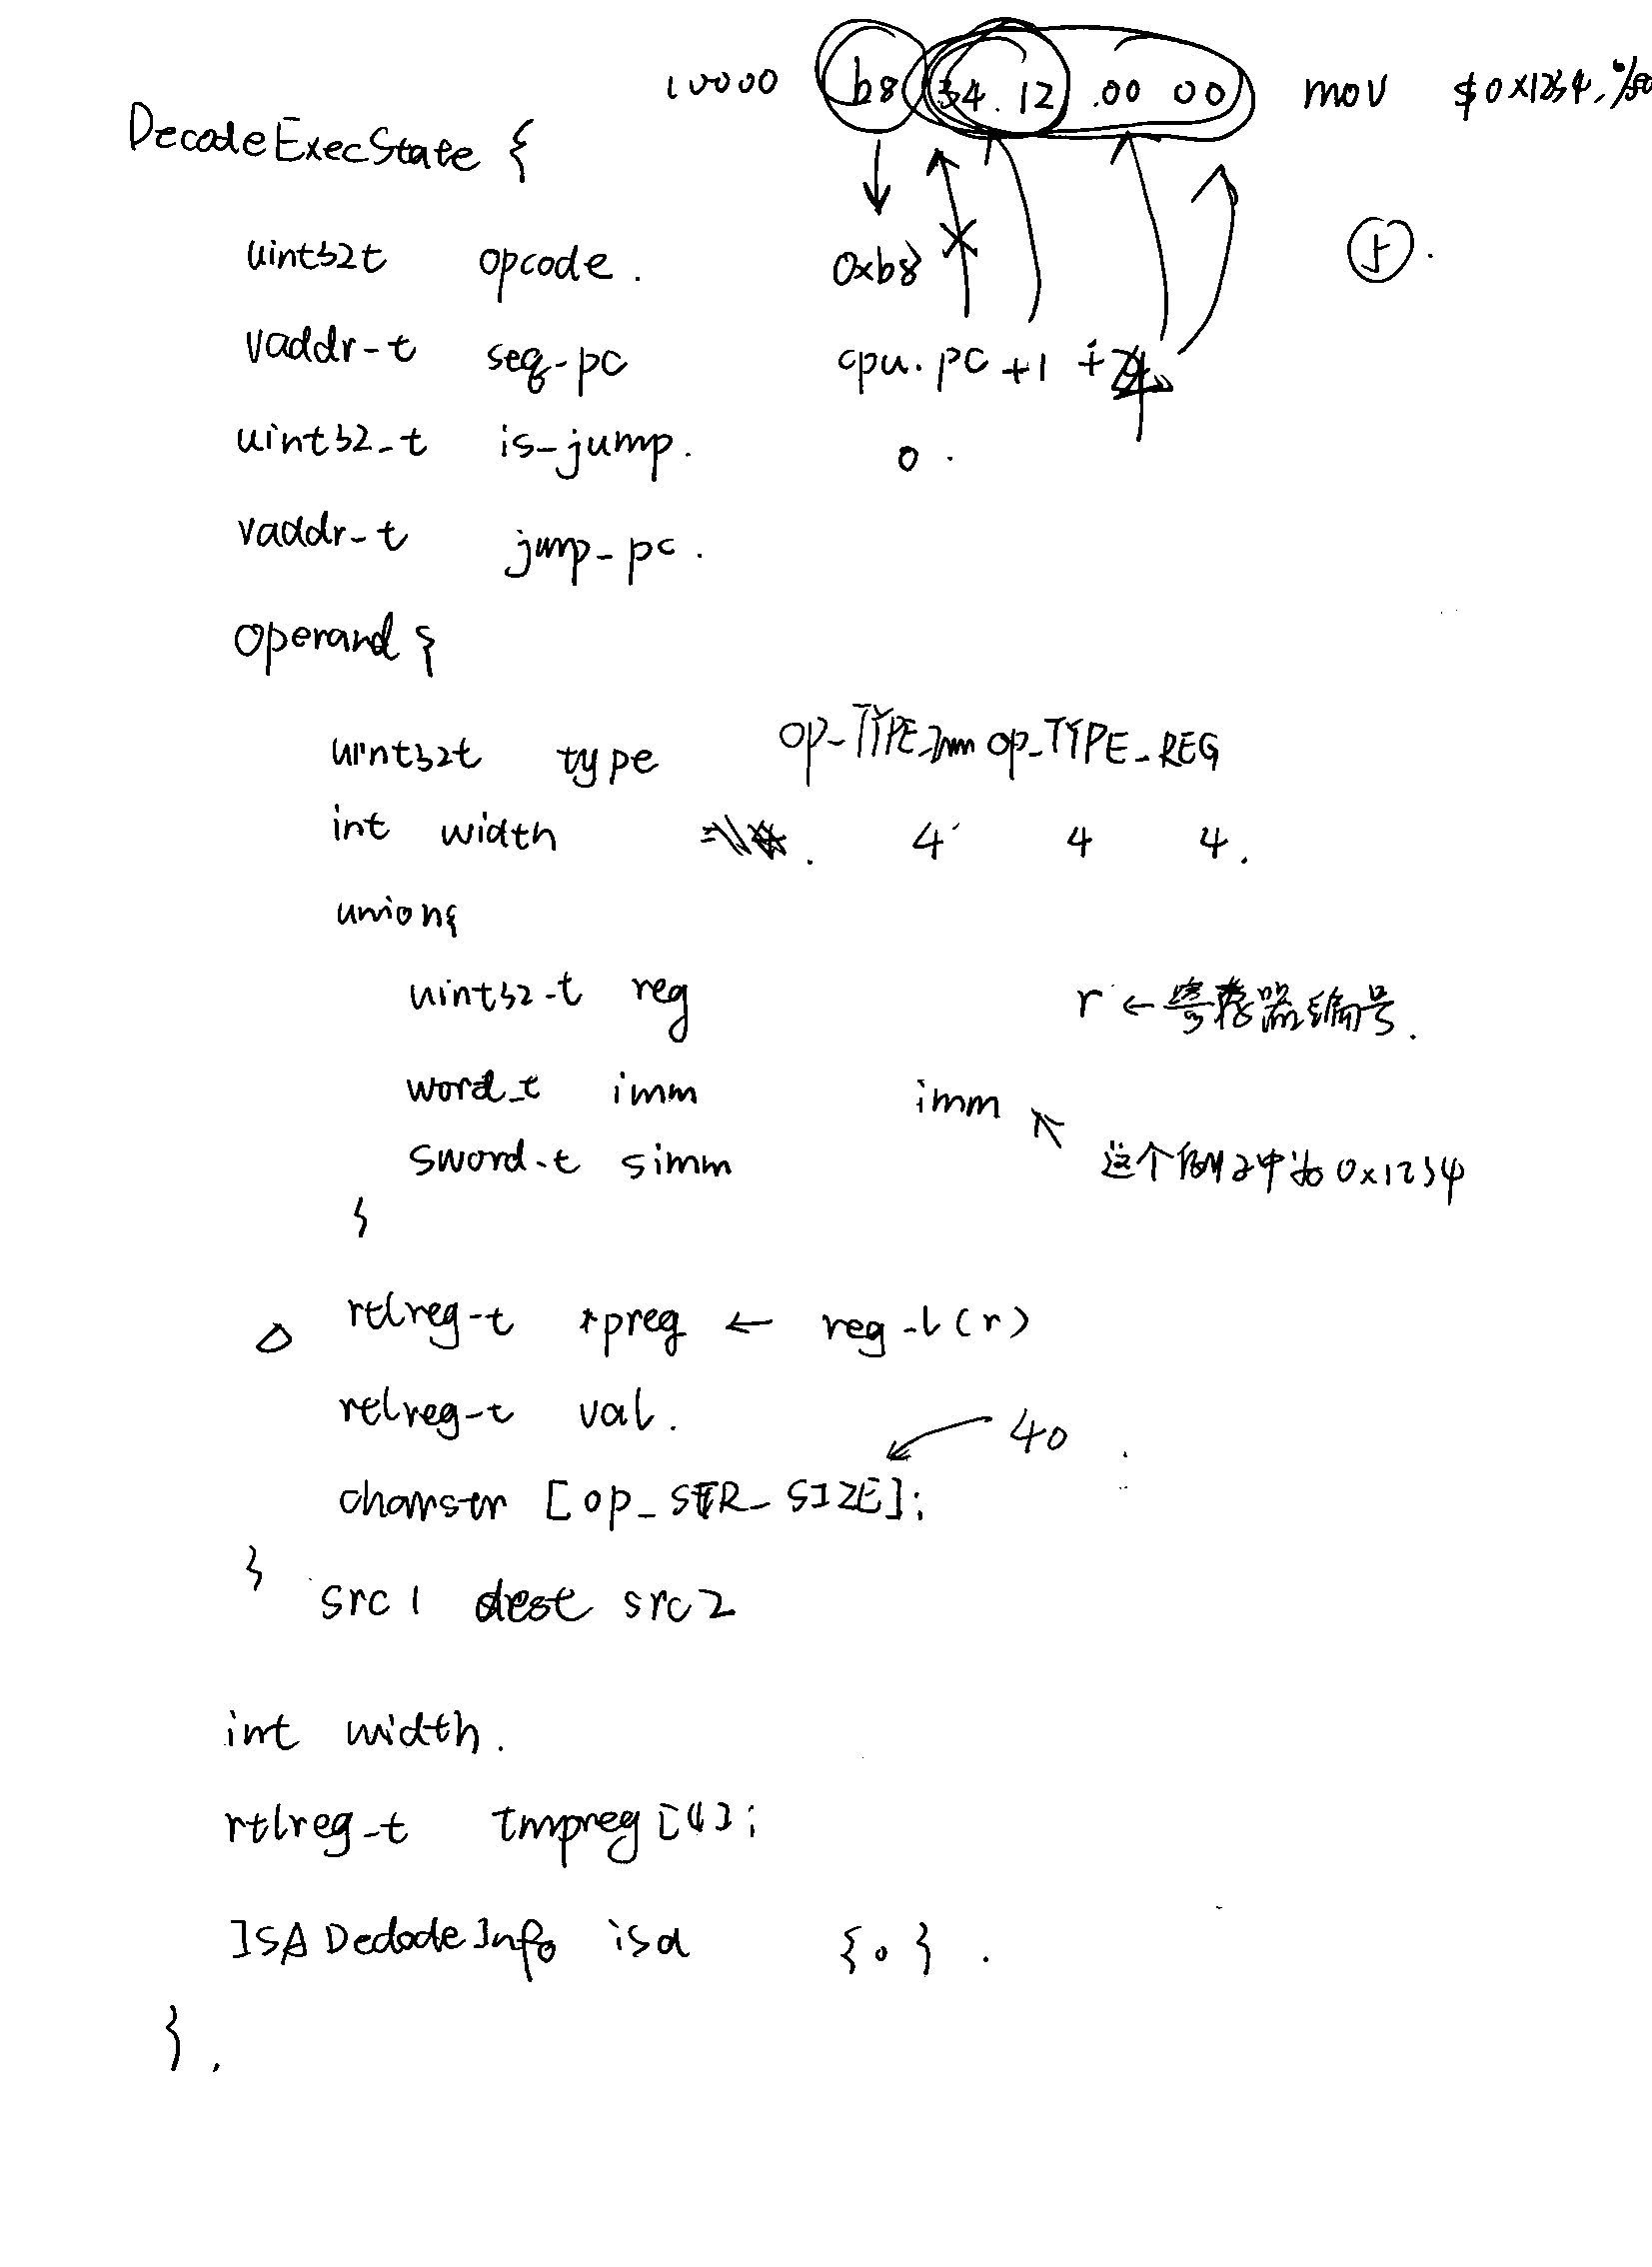 10000 b8 34.12 .00 00 mov $0x1234,%
DecodeExecState {
uint32t opcode. 0xb8
vaddr-t seq-pc cpu.pc +1 +4
uint32-t is-jump. 0.
vaddr-t jump-pc.
operand {
uint32t type op-TYPE-Imm op-TYPE-REG
int width 4 4 4.
union{
uint32-t reg r ← 寄存器编号.
word_t imm imm
sword-t simm 这个例子中为0x1234
}
rtlreg-t *preg ← reg-l(r)
rtlreg-t val.
40
char str [op_STR_SIZE];
} src1 dest src2
int width.
rtlreg-t tmpreg[4];
ISADedodeInfo isa {0}.
}.